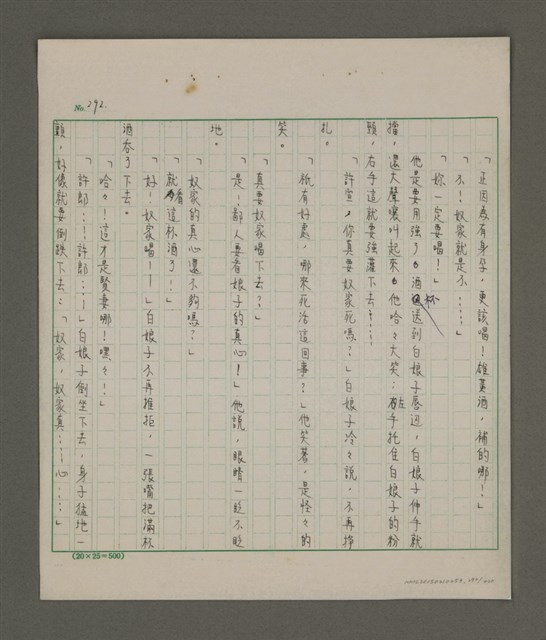 No. 292
「正因為有身孕，更該喝！雄黃酒，補的哪！」
「不！奴家就是不……」
「妳一定要喝！」
他是要用強了。酒杯送到白娘子唇邊，白娘子伸手就
擋，還大聲嚷叫起來。他哈々大笑；左手托住白娘子的粉
頸，右手這就要強灌下去……
「許宣，你真要奴家死嗎？」白娘子冷々說，不再掙
扎。
「祇有好意，哪來死活這回事？」他笑著，是怪々的
笑。
「真要奴家喝下去？」
「是！鄙人要看娘子的真心！」他說，眼睛一眨不眨
地。
「奴家的真心還不夠嗎？」
「就看這杯酒了！」
「好！奴家喝！！」白娘子不再推拒，一張嘴把滿杯
酒吞了下去。
「哈々！這才是賢妻哪！嘿々！」
「許郎……許郎……！」白娘子倒坐下去，身子猛地一
顫，好像就要倒跌下去：「奴家，奴家真……心……」
(20×25=500)